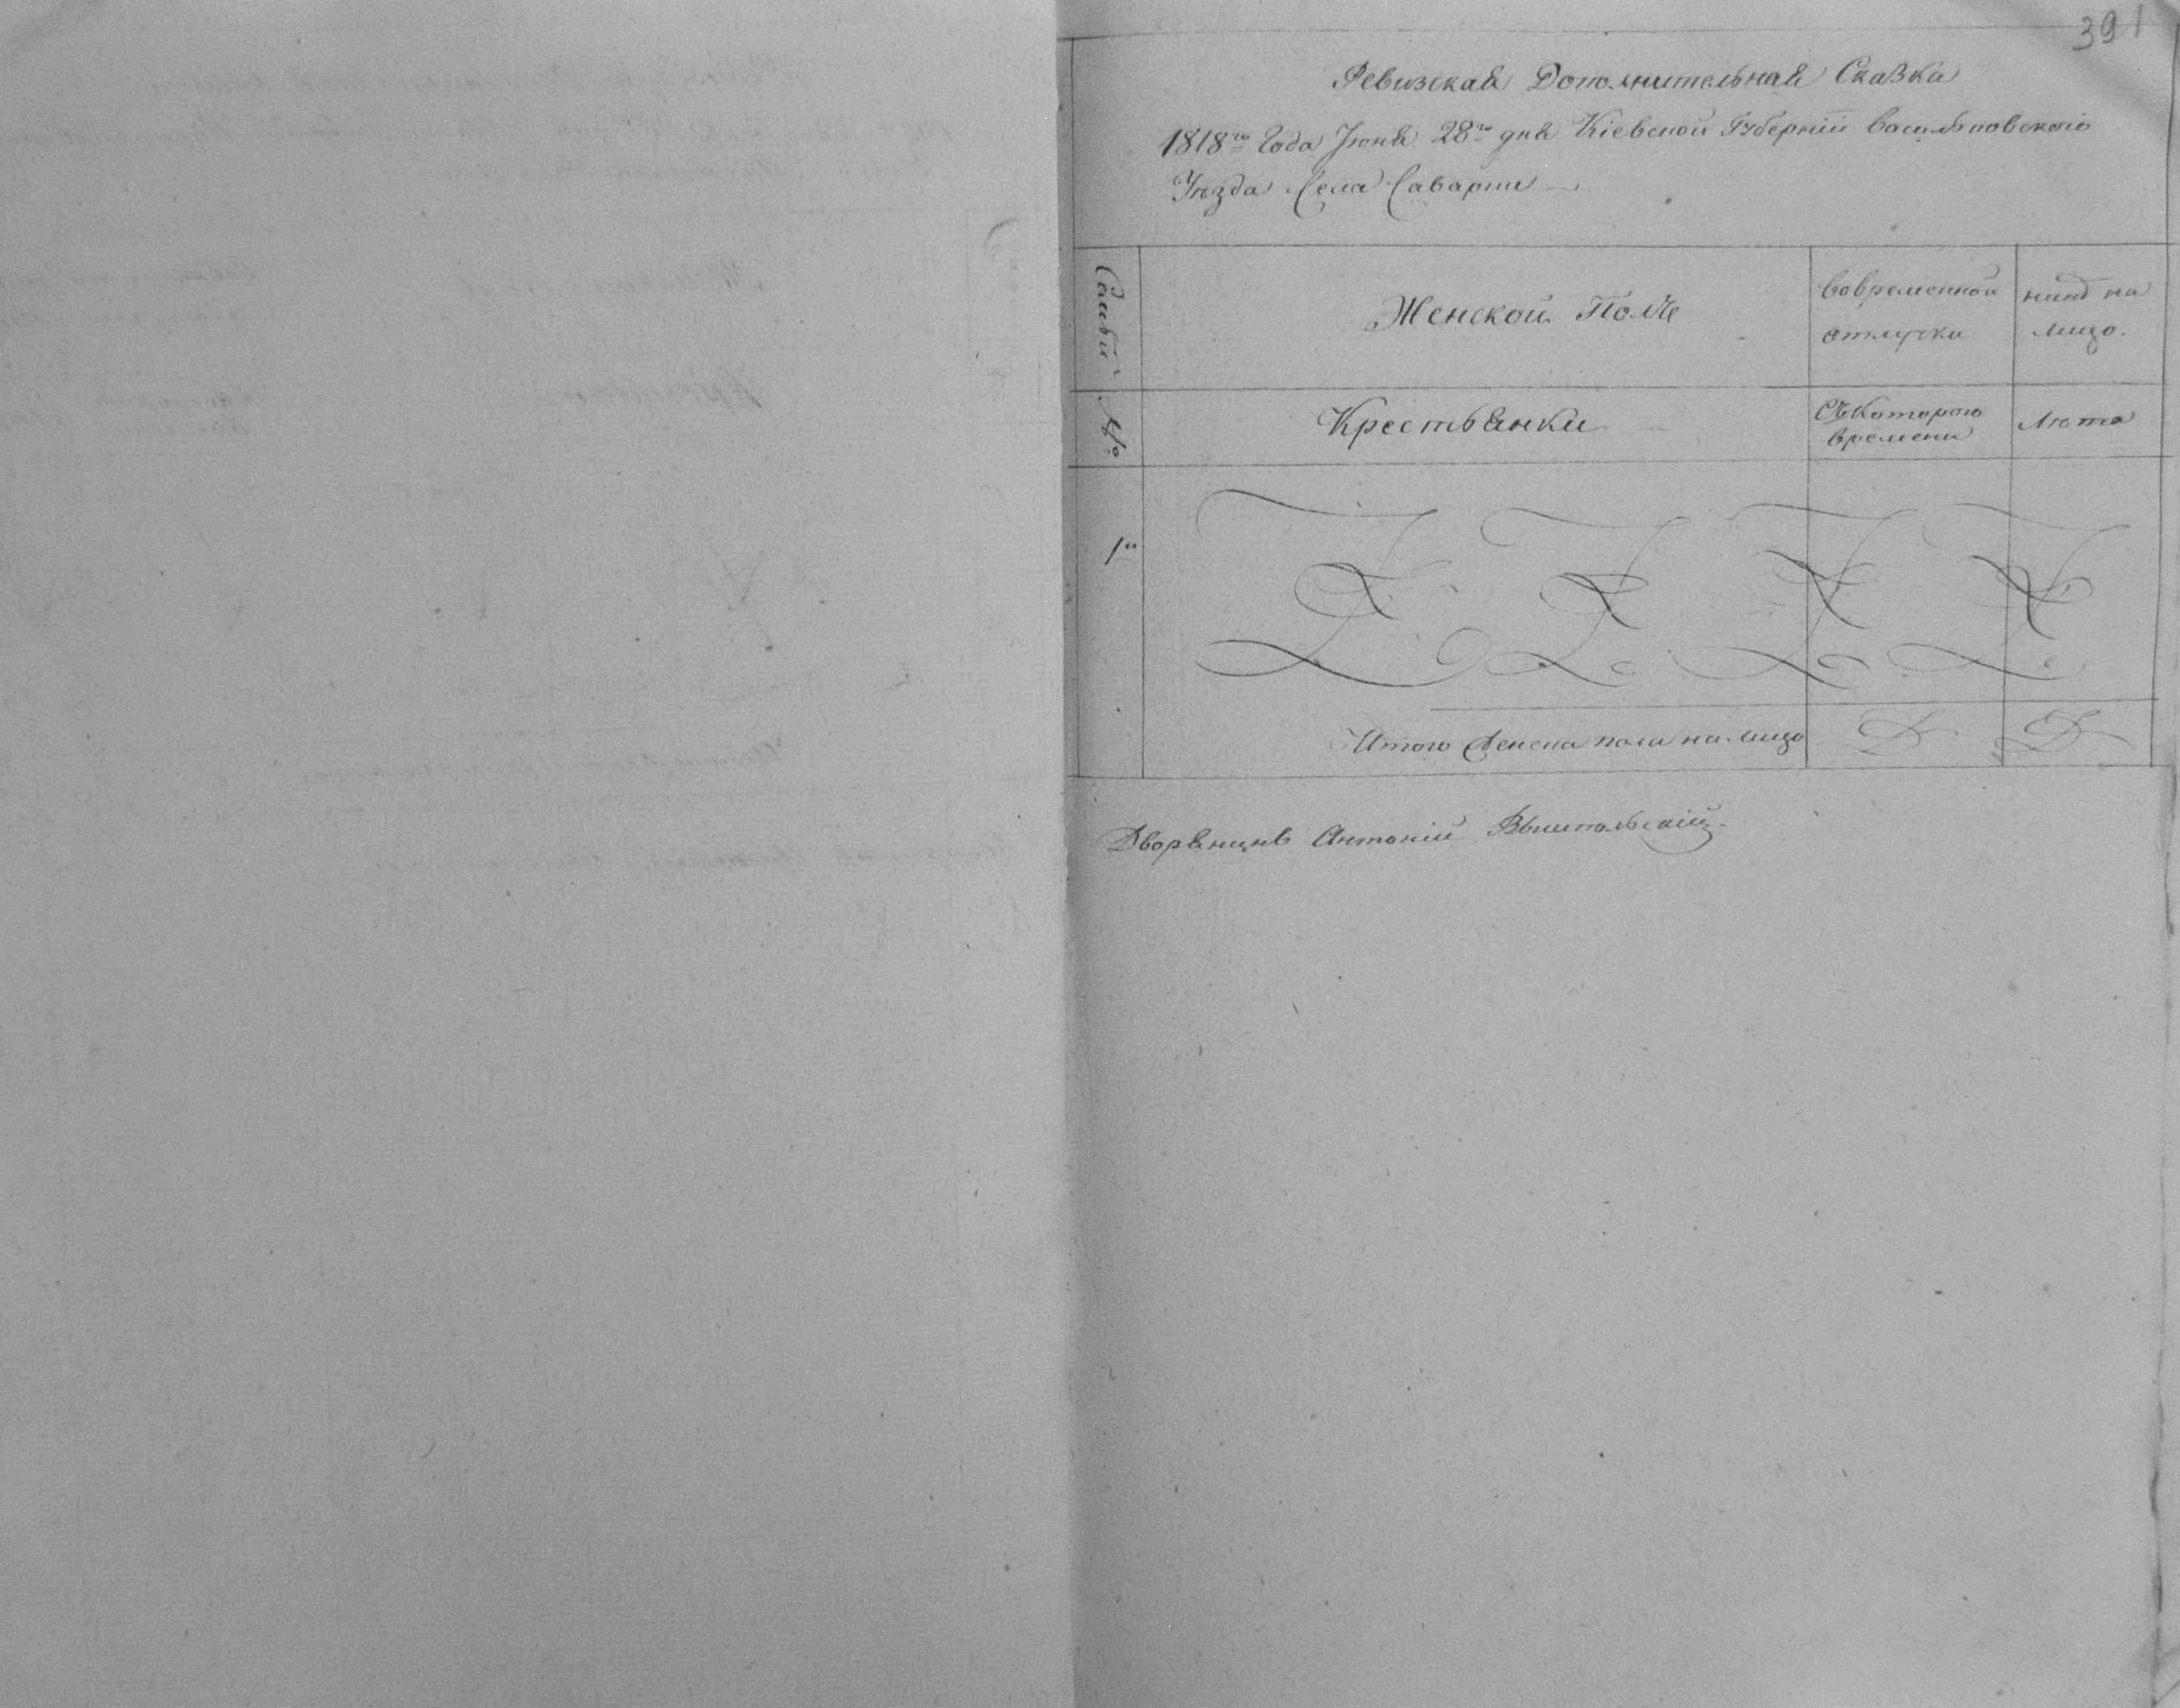 391
Ревизская Дополнительная Сказка
1818го Года Іюня 28го дня Кіевской Губерніи васильковского
Уезда Села Саварки
Семьи
№
Женской Полъ
вовременной
отлучки
нине на
лицо.
Крестьянки
Съкоторого
времени
Лета
1й
Итого женска пола налицо
Дворянинъ Антоній Вышпольскій